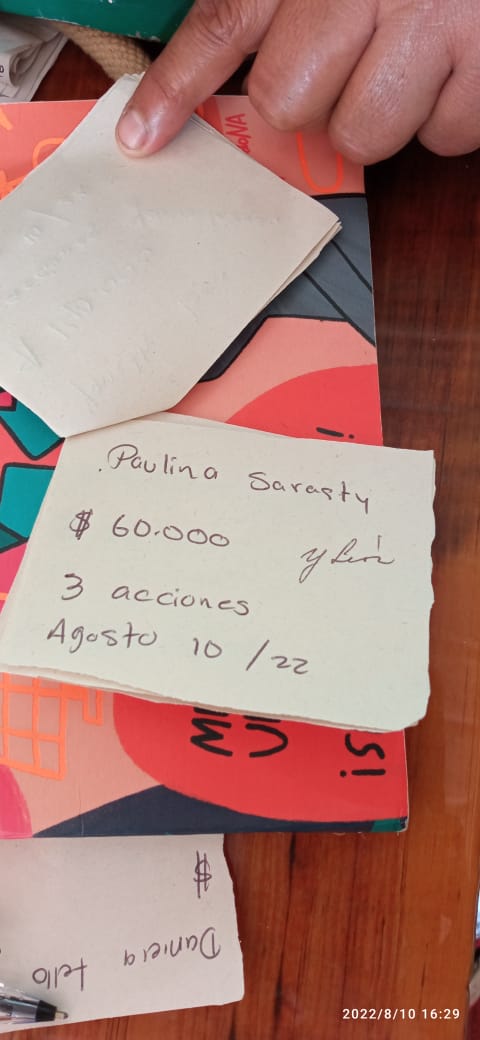 Paulina Sarasty
$ 60.000
3 acciones
Agosto 10 / 22
$
Daniela tello
2022/8/10 16:29